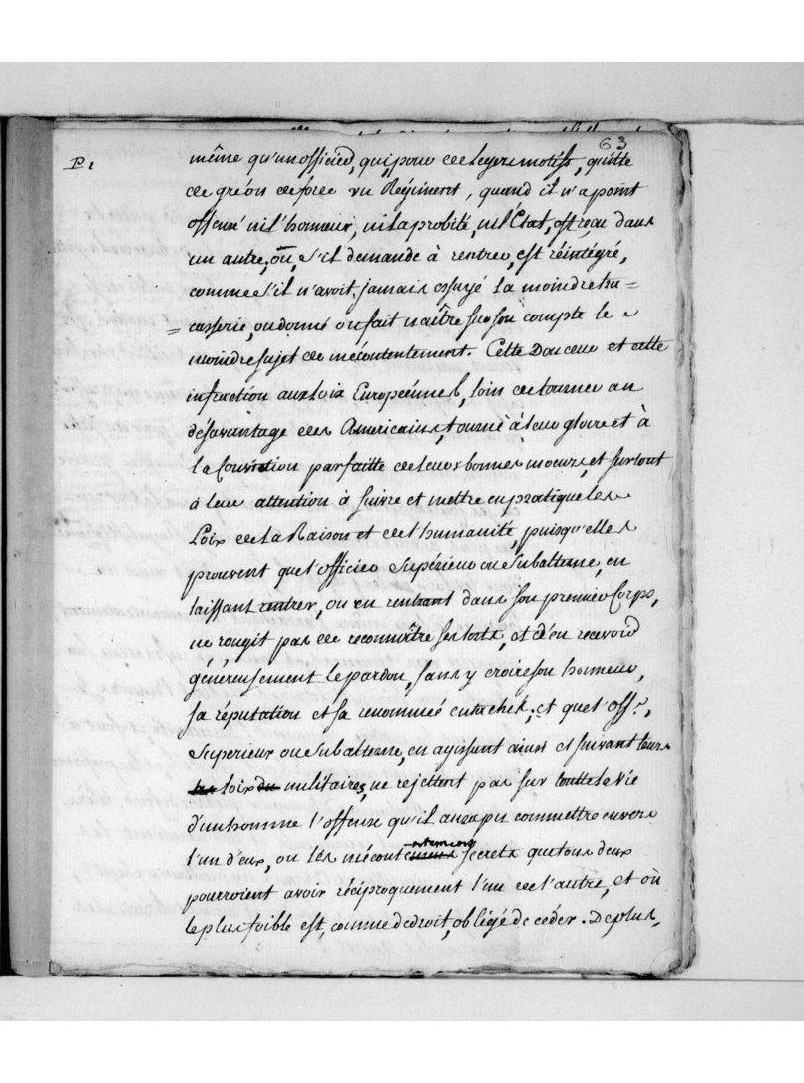 63
P. 1
même qu'un officier, qui pour de legers motifs, quitte
de gré ou de force un Régiment, quand il n'a point
offensé ni l'honneur, ni la probité, ni l'Etat, est reçu dans
un autre, ou, s'il demande à rentrer, est réintégré,
comme s'il n'avoit jamais essuyé la moindre tra=
=casserie, ou donné ou fait naître sur son compte le
moindre sujet de mécontentement. Cette Douceur et cette
infraction aux Loix Européennes, loin de tourner au
désavantage des Americains, tourne à leur gloire et à
la Conviction parfaitte de leurs bonnes moeurs, et surtout
à leur attention à suivre et mettre en pratique les
Loix de la Raison et de l'humanité, puisqu'elles
prouvent que l'officier Supérieur ou Subalterne, en
laissant rentrer, ou en rentrant dans son premier Corps,
ne rougit pas de reconnoître ses torts, et d'en recevoir
généreusement le pardon, sans y croire son honneur,
sa réputation et sa renommée entachés, et que l'offr.
Superieur ou Subalterne, en agissant ainsi et suivant leurs
loix militaires, ne rejettent pas sur toutte la vie
d'un homme l'offense qu'il aura pu commettre envers
l'un d'eux, ou les mécontentemens secrets que tous deux
pourroient avoir réciproquement l'un de l'autre, et où
le plus foible est, comme de droit, obligé de ceder. De plus,